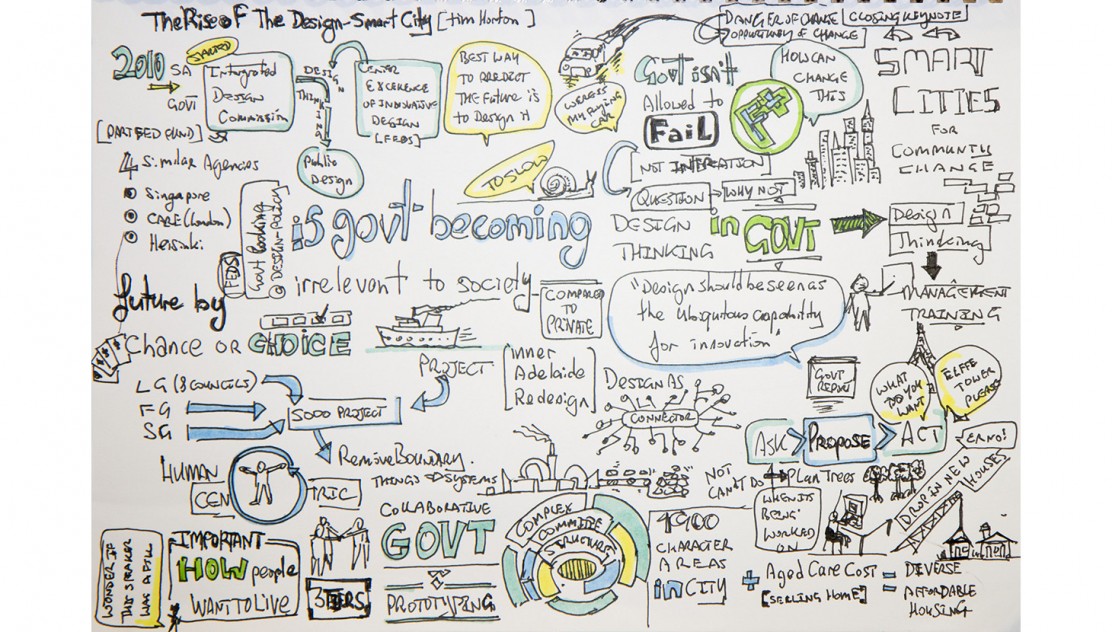 The Rise Of The Design-Smart City [Tim Horton]
DANGER OF CHANGE
OPPORTUNITY OF CHANGE
CLOSING KEYNOTE
2010
STARTED
SA
GOVT
Intergrated
Design
Commission
DESIGN
THINKING
Center
EXCELLENCE
OF INNOVATIVE
DESIGN
[FEDS]
BEST WAY
TO PREDICT
THE Future is
to Design it
WHERE IS
MY FLYING
CAR
GOVT isn't
Allowed to
FaiL
HOW CAN
CHANGE
THIS
SMART
CITIES
FOR
COMMUNITY
CHANGE
[PART FED FUND]
4 Similar Agencies
Singapore
CABE (London)
Helsinki
Public
Design
TO SLOW
NOT INTERATION
QUESTION
WHY NOT
FEDS
Govt looking
@ DESIGN-POLICY
is govt becoming
irrelevant to society
COMPARED
TO
PRIVATE
DESIGN
THINKING
in GOVT
Design
Thinking
MANAGEMENT
TRAINING
"Design should be seen as
the ubiquitous capability
for innovation"
future by
Chance OR CHOICE
PROJECT
inner
Adelaide
Redesign
LG (8 COUNCILS)
FG
SG
5000 PROJECT
Remove BOUNDARY
THINGS SYSTEMS
DESIGN AS
CONNECTOR
GOVT
WHAT
DO YOU
WANT
EIFFE
TOWER
PLEASE
ASK
PROPOSE
ACT
ER NO!
HUMAN
CEN
TRIC
NOT
CAN'T DO
Plan Trees
WHEN IS
BEING
WORKED
ON
DROP IN NEW
HOUSES
WONDER IF
THIS SPEAKER
WAS A
IMPORTANT
HOW people
WANT TO LIVE
3 TIERS
COLLABORATIVE
GOVT
PROTOTYPING
COMPLEX
COMMITTE
STRUCTURE
1900
CHARACTER
AREAS
in CITY
+ Aged Care Cost
[SERLING HOME]
= DEVERSE
AFFORDABLE
HOUSING